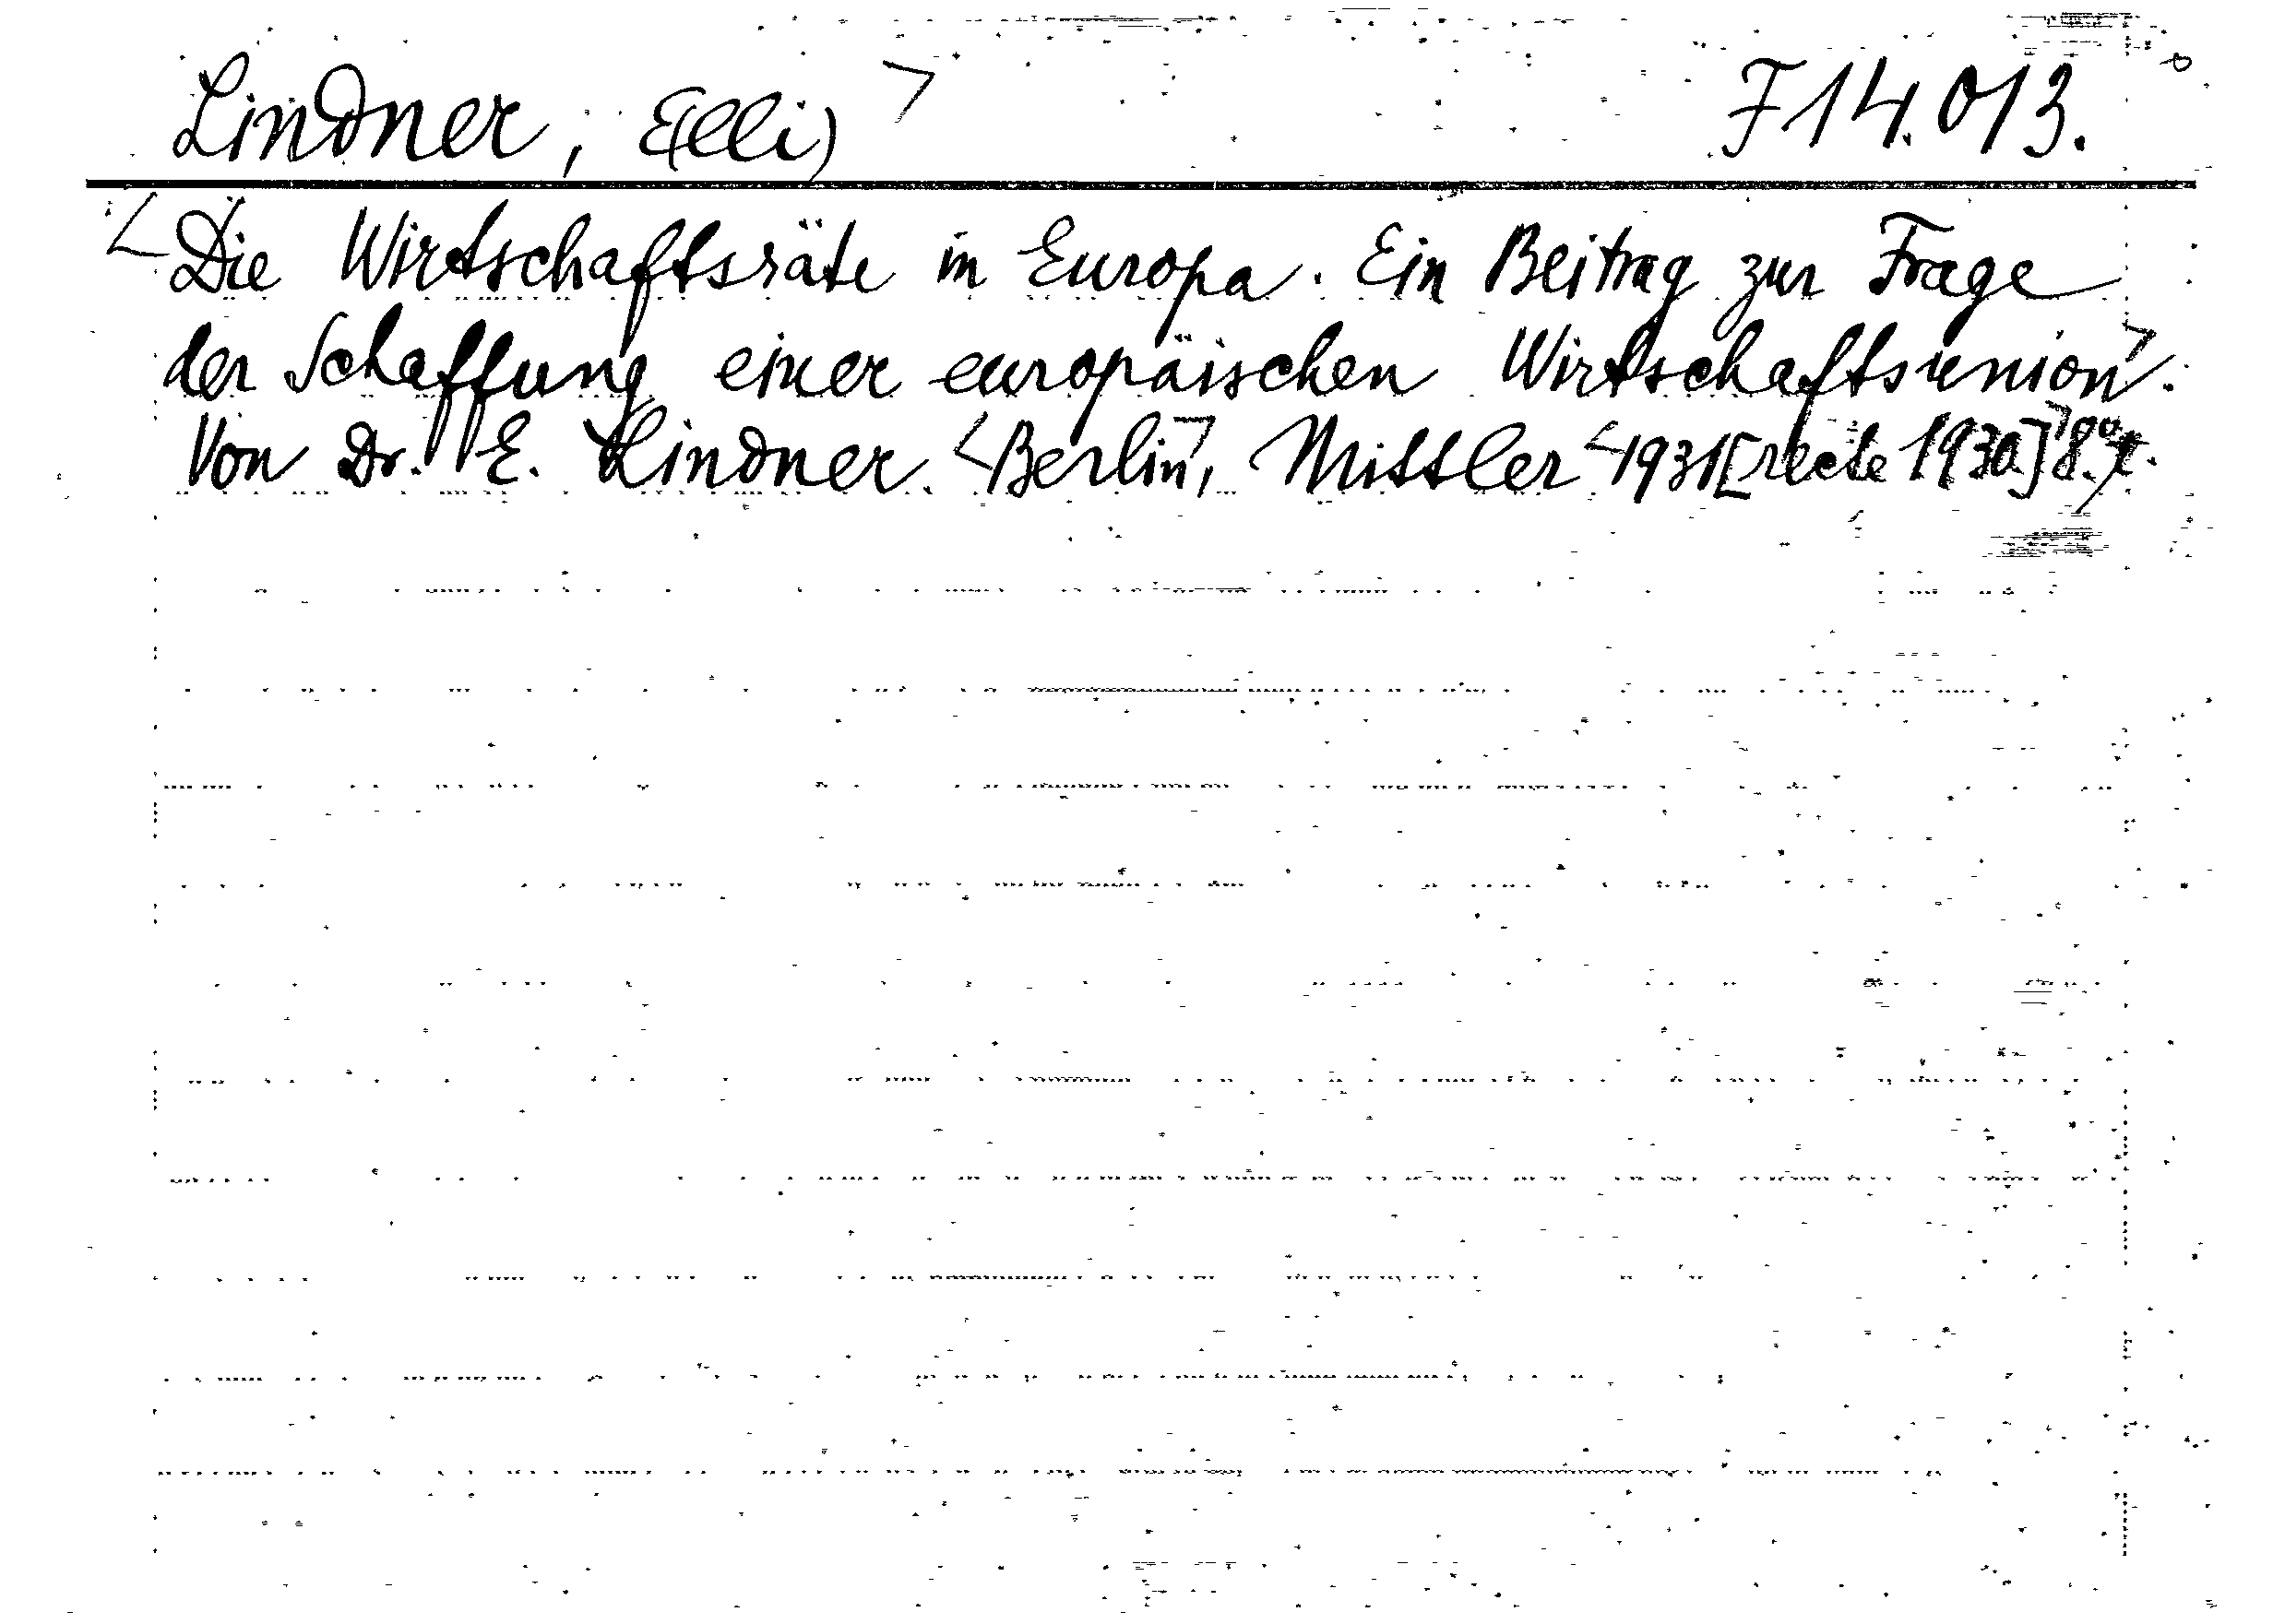 Lindner, E(lli) F 14.013.
Die Wirtschaftsräte in Europa. Ein Beitrag zur Frage
der Schaffung einer europäischen Wirtschaftsunion.
Von Dr. E. Lindner. Berlin, Mittler 1931 [recte 1930] 8°.